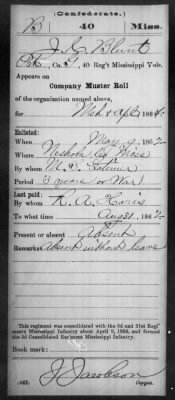 (Confederate.)
B 40 Miss.
J. C. Blunt
Pvt, Co. G, 40 Reg't Mississippi Vols.
Appears on
Company Muster Roll
of the organization named above,
for Mch & Apl, 1864.
Enlisted:
When Mar 9, 1862
Where Neshoba Co Miss
By whom
Period 3 years or War
Last paid:
By whom R. A. Haris
To what time Aug 31, 1862
Present or absent Absent
Remarks: Absent without leave
This regiment was consolidated with the 3d and 31st Regi-
ments Mississippi Infantry about April 9, 1865, and formed
the 3d Consolidated Regiment Mississippi Infantry.
Book mark:
J Jacobson
(642) Copyist.